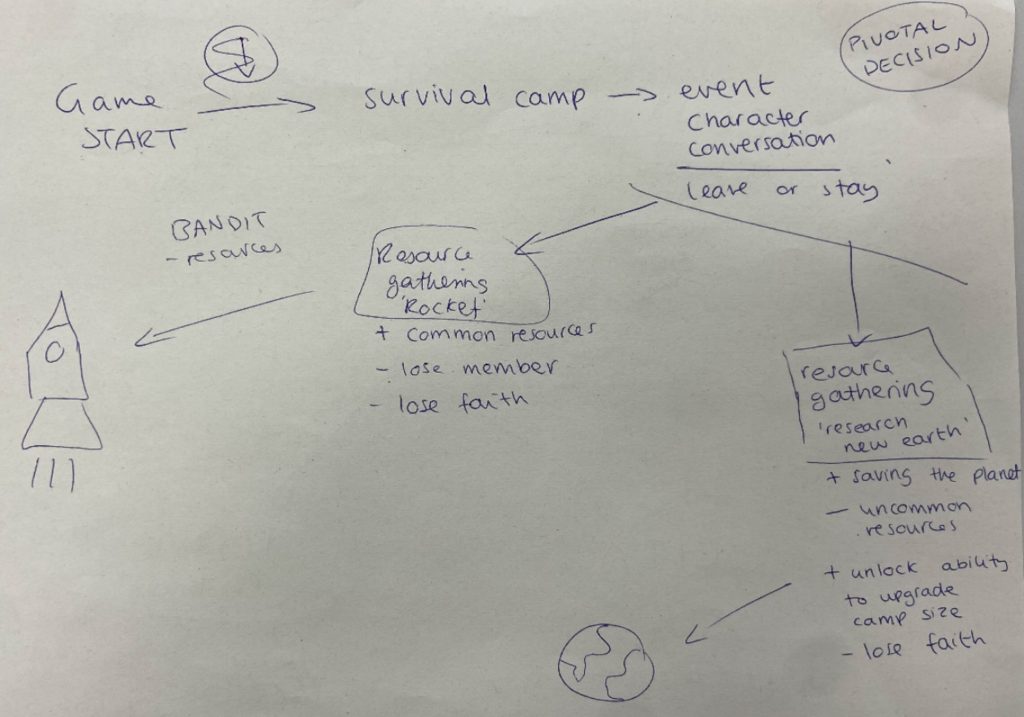 Game
START
survival camp
event
character
conversation
leave or stay
PIVOTAL
DECISION
BANDIT
- resources
Resource
gathering
'Rocket'
+ common resources
- lose member
- lose faith
resource
gathering
'research
new earth'
+ saving the planet
- uncommon
resources
+ unlock ability
to upgrade
camp size
- lose faith